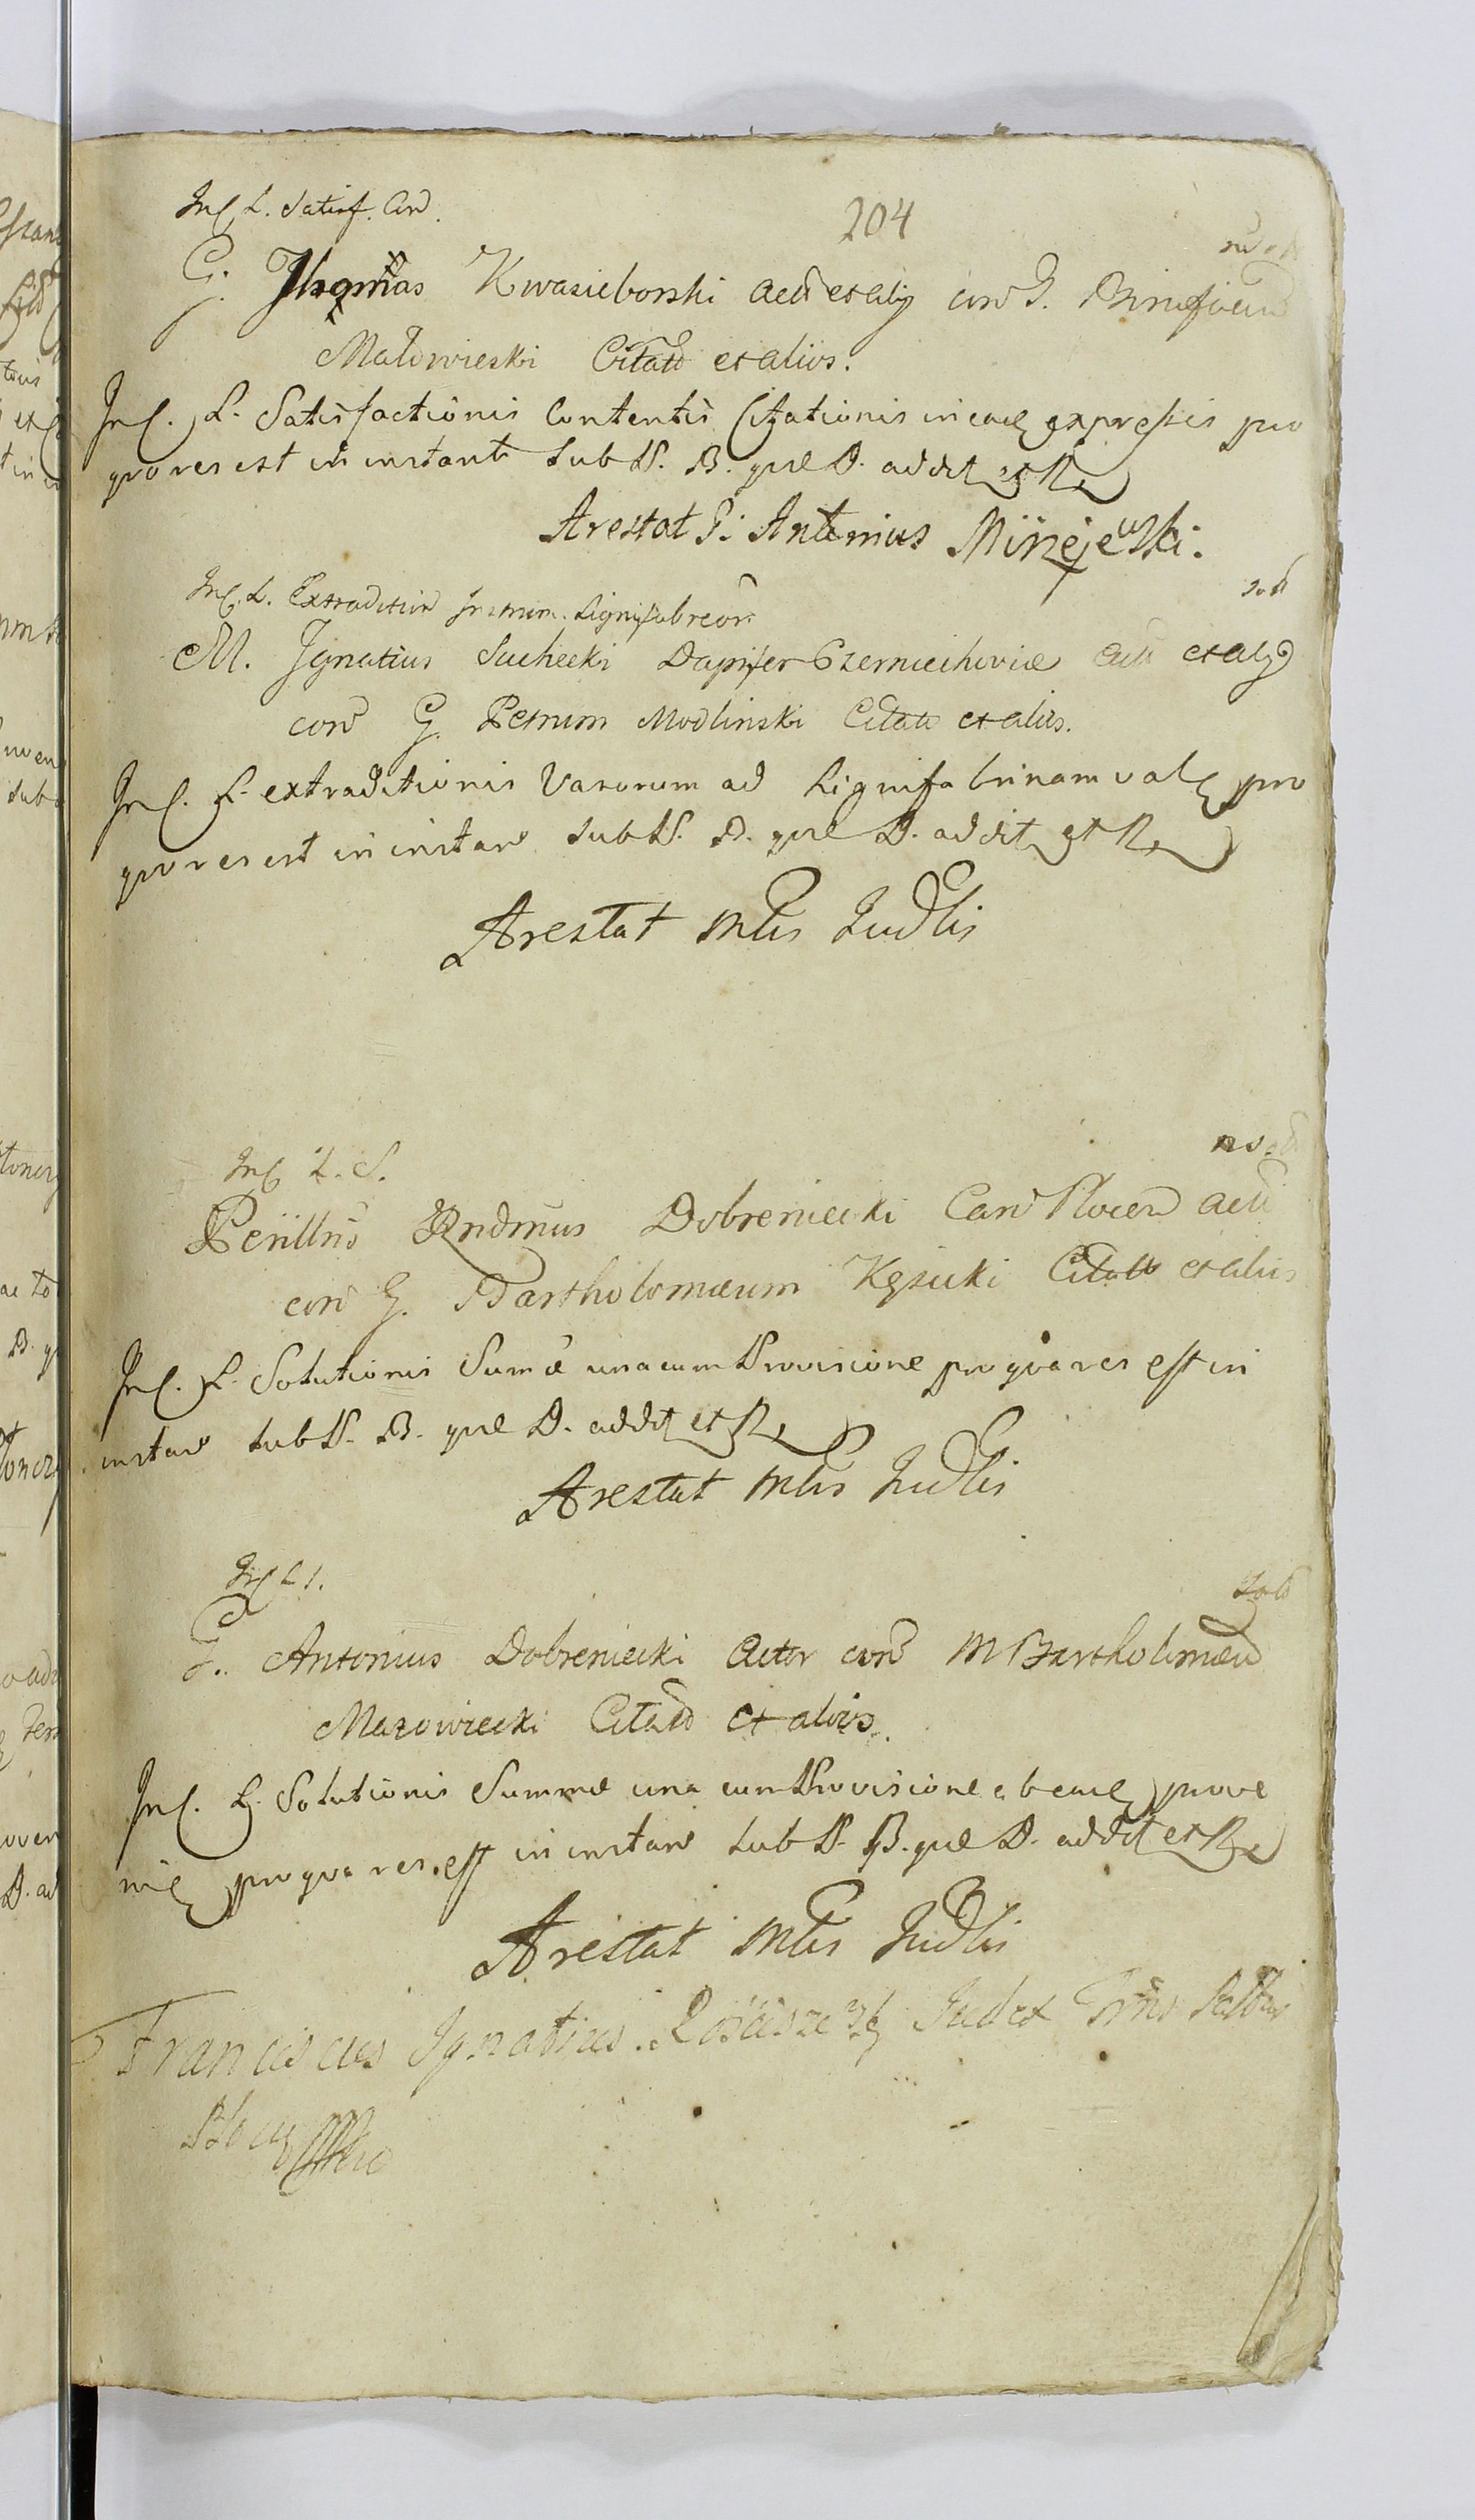 Inl. L. Satisf. Con.
204
G. Thomas Kwasieborski Actõ et alij con̄ G. Benefacũ
Małowieski Citatõ et alios.
Inl. L. Satisfactionis Contentis Citationis in eaq expressis pro
quo res est in instanti sub P. B. que D. addit et R
Arestat G: Antonius Miszejewski.
Inl. L. Extradition Instrum. Lignifabrcor.
M. Ignatius Suchecki Dapifer Czerniechoviæ Actõ et alij
con̄ G. Petrum Modlinski Citatõ et alios.
Inl. L. extraditionis Vasorum ad Lignifabrinam valq pro
quo res est in instan̄ sub P. B. que D. addit et R
Arestat Mtis Judlis
Inl L. S.
Perillris Rndmus Dobreniecki Can̄ Plocen̄ Actõ
con̄ G. Bartholomæum Kęsicki Citatõ et alios
Inl. L. Solutionis Sum̄æ una cum Provisione pro qua res est in
instan̄ sub P. B. que D. addit et R
Arestat Mtis Judlis
Inl L S.
G. Antonius Dobreniecki Actor con̄ M Bartholomæũ
Mazowiecki Citatõ et alios.
Inl. L. Solutionis Summæ una cum Provisione ab eaq prove
niē pro qua res est in instan̄ sub P. B. que D. addit et R
Arestat Mtis Judlis
Franciscus Ignatius Judex